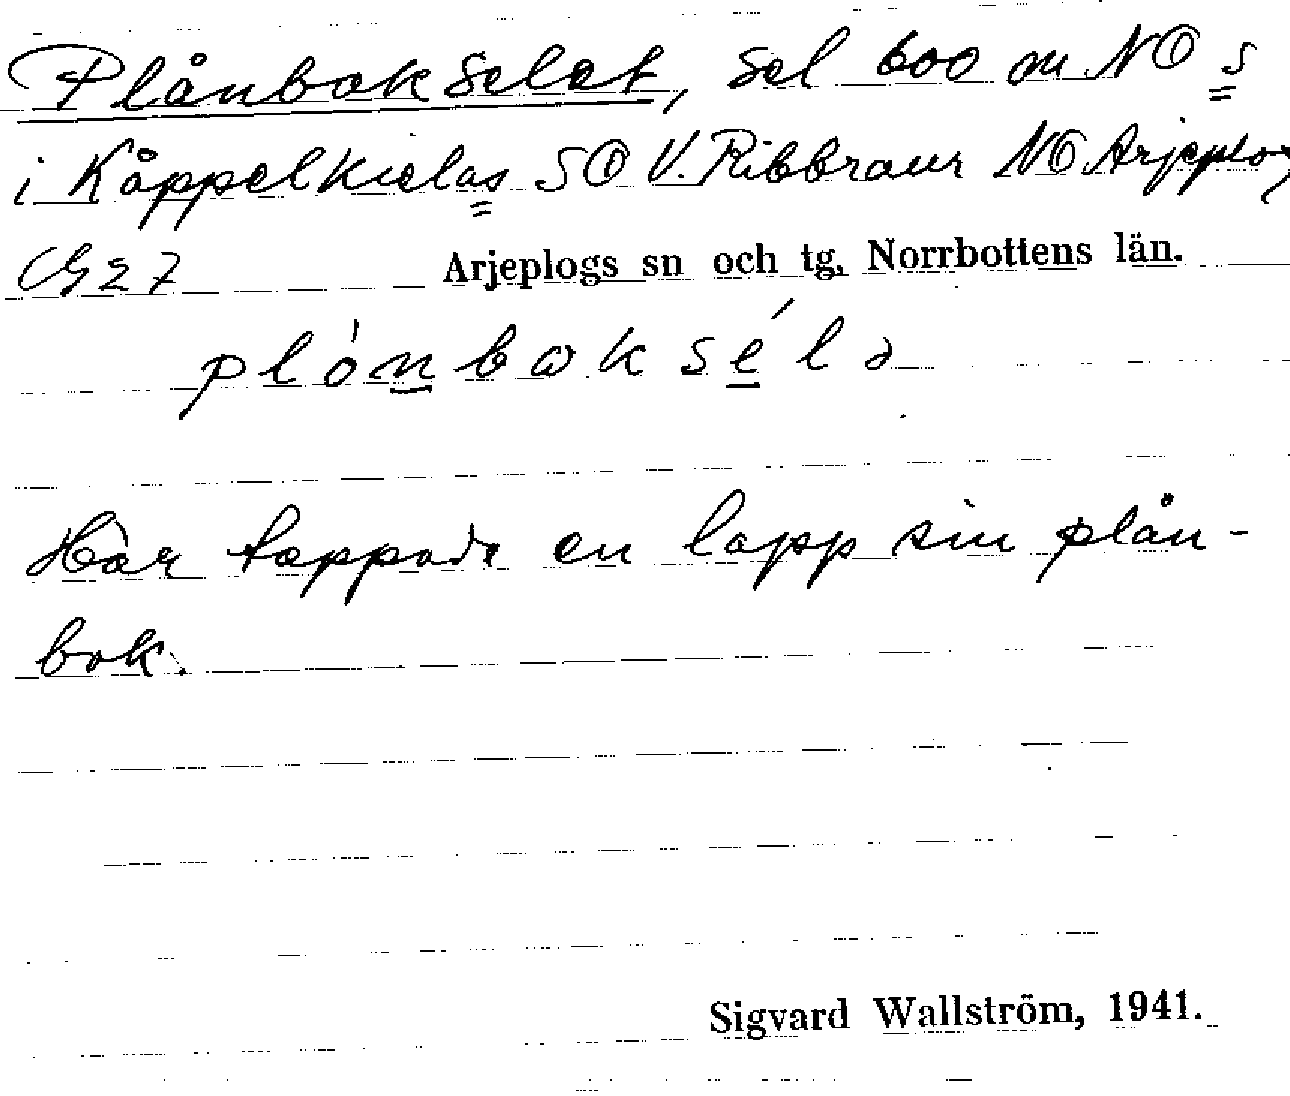 Plånbokselet, sel 600 m NO s
i Kåppelkielas SO V. Ribbraur NO Arjeplog
G27 Arjeplogs sn och tg, Norrbottens län.
plónbωkséla
Här tappade en lapp sin plån-
bok.
Sigvard Wallström, 1941.